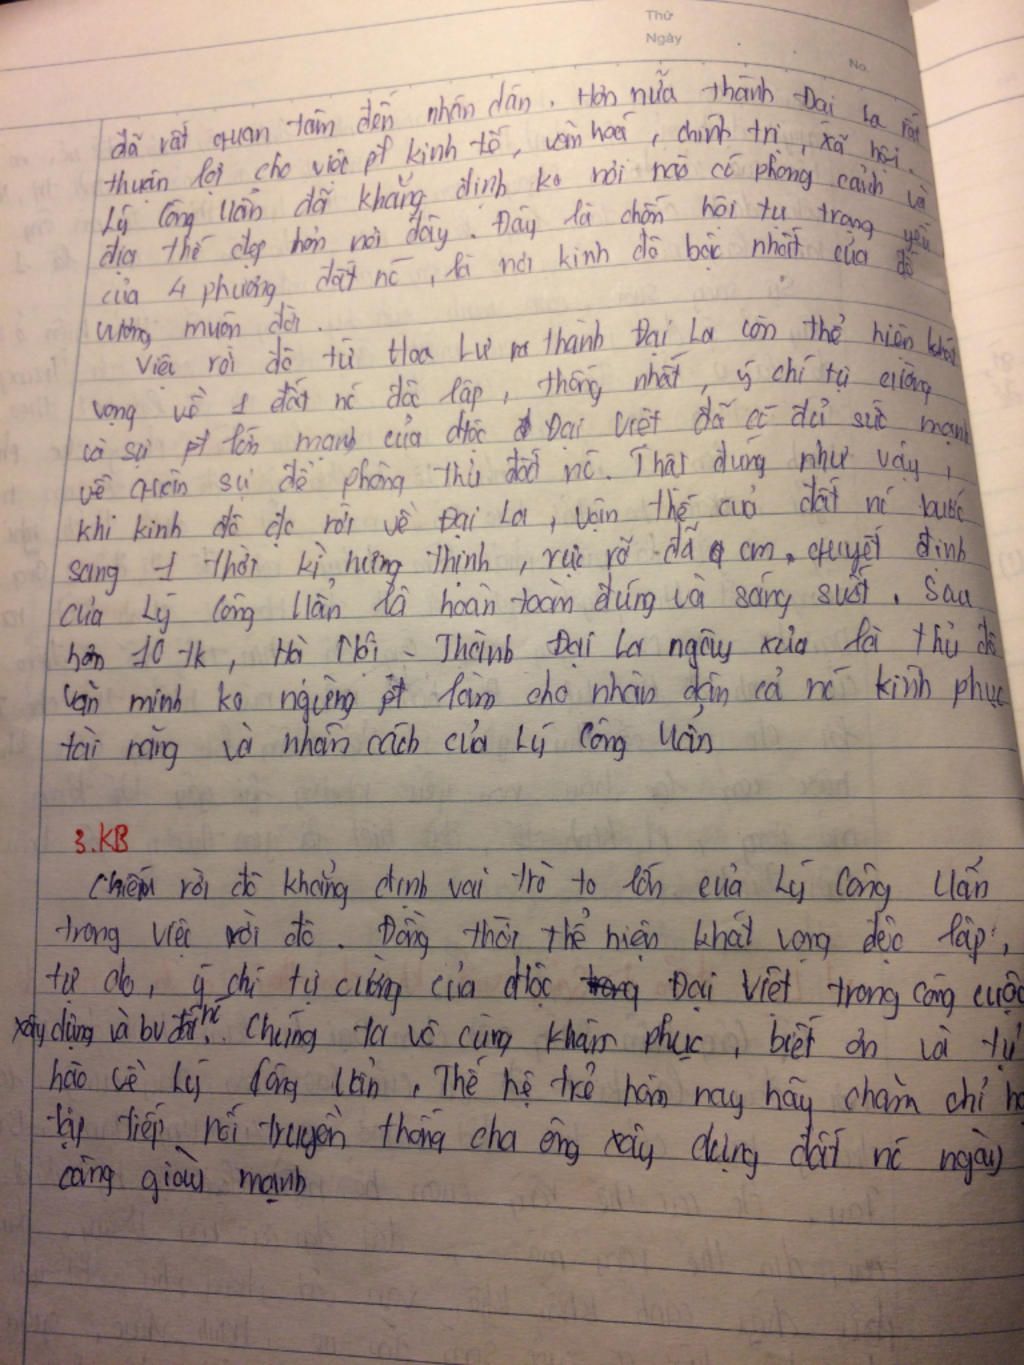 Thứ
Ngày
No.
đã rất quan tâm đến nhân dân. Hơn nữa thành Đại La rất
thuận lợi cho việc pt kinh tế, văn hoá, chính trị, xã hội.
Lý Công Uẩn đã khẳng định ko nơi nào có phong cảnh và
địa thế đẹp hơn nơi đây. Đây là chốn hội tụ trọng yếu
của 4 phương đất nc, là nơi kinh đô bậc nhất của đế
vương muôn đời.
Việc rời đô từ Hoa Lư ra thành Đại La còn thể hiện khát
vọng về 1 đất nc độc lập, thống nhất, ý chí tự cường
và sự pt lớn mạnh của dtộc Đại Việt đã có đủ sức mạnh
về quân sự để phòng thủ đất nc. Thật đúng như vậy,
khi kinh đô đc rời về Đại La, vận thế của đất nc bước
sang 1 thời kì hưng thịnh, rực rỡ đã cm quyết định
của Lý Công Uẩn là hoàn toàn đúng và sáng suốt. Sau
hơn 10 tk, Hà Nội - Thành Đại La ngày xưa là thủ đô
văn minh ko ngừng pt làm cho nhân dân cả nc kính phục
tài năng và nhân cách của Lý Công Uẩn
3. KB
Chiếu rời đô khẳng định vai trò to lớn của Lý Công Uẩn
trong việc rời đô. Đồng thời thể hiện khát vọng độc lập,
tự do, ý chí tự cường của dtộc Đại Việt trong công cuộc
xây dựng và bv đất nc. Chúng ta vô cùng khâm phục, biết ơn và tự
hào về Lý Công Uẩn. Thế hệ trẻ hôm nay hãy chăm chỉ học
tập tiếp nối truyền thống cha ông xây dựng đất nc ngày
càng giàu mạnh